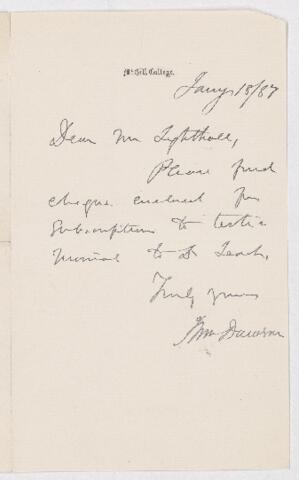 McGill College.
Jany 18/87
Dear Mr Lighthall,
Please find
cheque enclosed for
Subscription to testi-
monial to Dr Leach.
Truly yours
J Wm Dawson